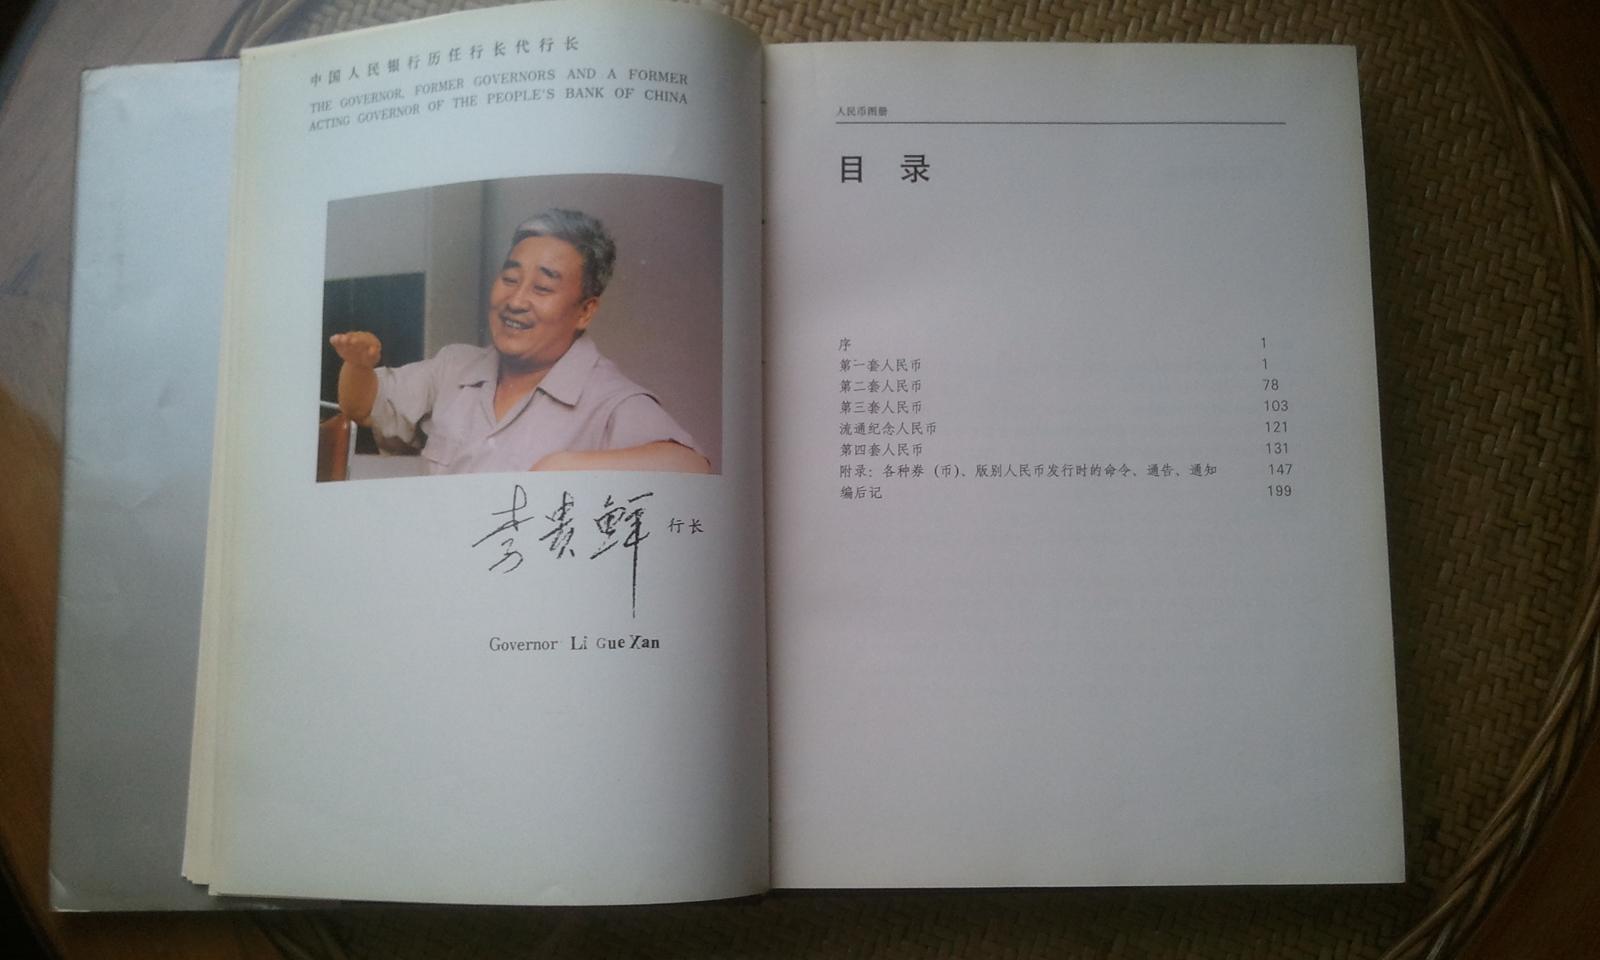 中国人民银行历任行长代行长
THE GOVERNOR, FORMER GOVERNORS AND A FORMER
ACTING GOVERNOR OF THE PEOPLE'S BANK OF CHINA
李贵鲜 行长
Governor Li Gue Xan
人民币图册
目 录
序 1
第一套人民币 1
第二套人民币 78
第三套人民币 103
流通纪念人民币 121
第四套人民币 131
附录：各种券（币）、版别人民币发行时的命令、通告、通知 147
编后记 199